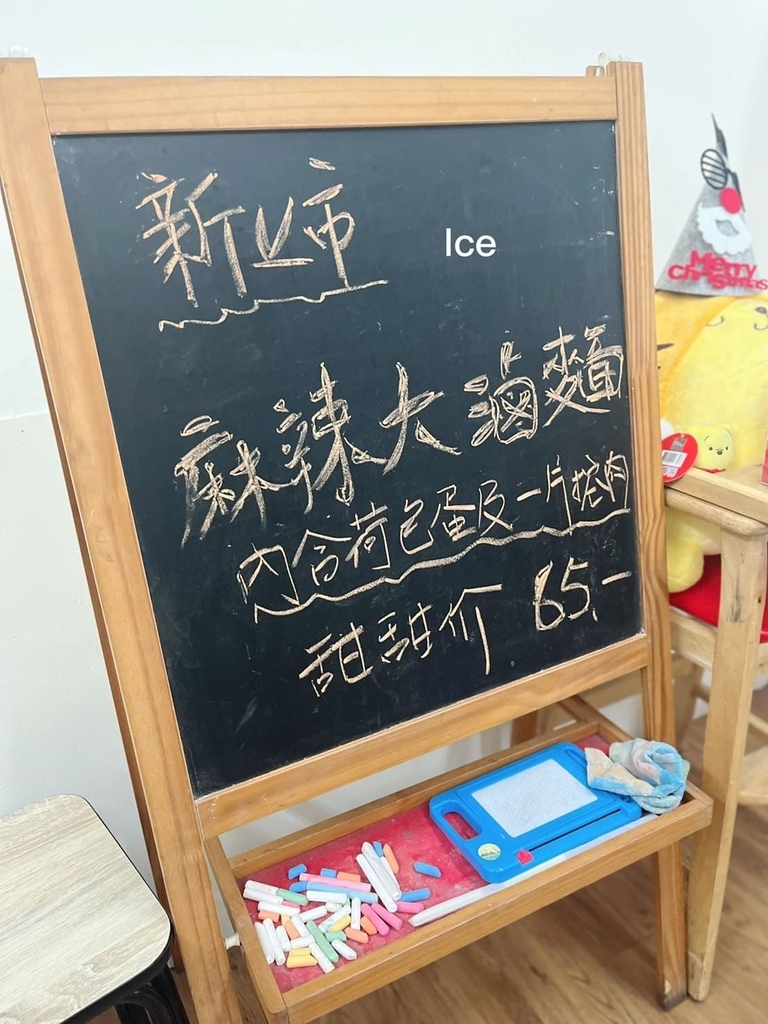 新上市
Ice
麻辣大滷麵
內含荷包蛋及一片控肉
甜甜价 85.-
Merry
Christmas